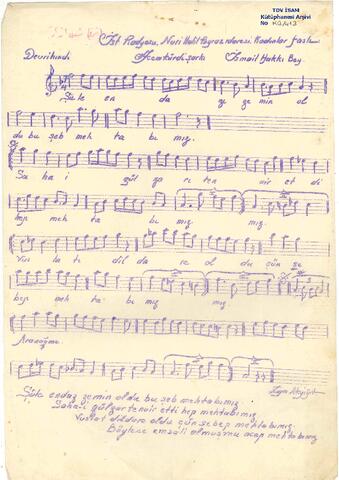 TDV İSAM
Kütüphanesi Arşivi
No
İst Radyosu, Nuri Halil Poyraz idaresi, Kadınlar faslı
Devrihindi
Acemkürdi şarkı
İsmail Hakkı Bey
Şû le en da ze ze min ol
du bu şeb meh ta bı mız
Sa ha i gül za rı ten vir et di
hep meh ta bı mız
Vus la ti dil da re ol du çün se
beb meh ta bı mız mız
Aranağme
Şûle endaz zemin oldu bu şeb mehtabımız
Sahai gülzar tenvir etti hep mehtabımız
Vuslat dildare oldu çün sebep mehtabımız
Böylece emsali olmuşmu acap mehtabımız